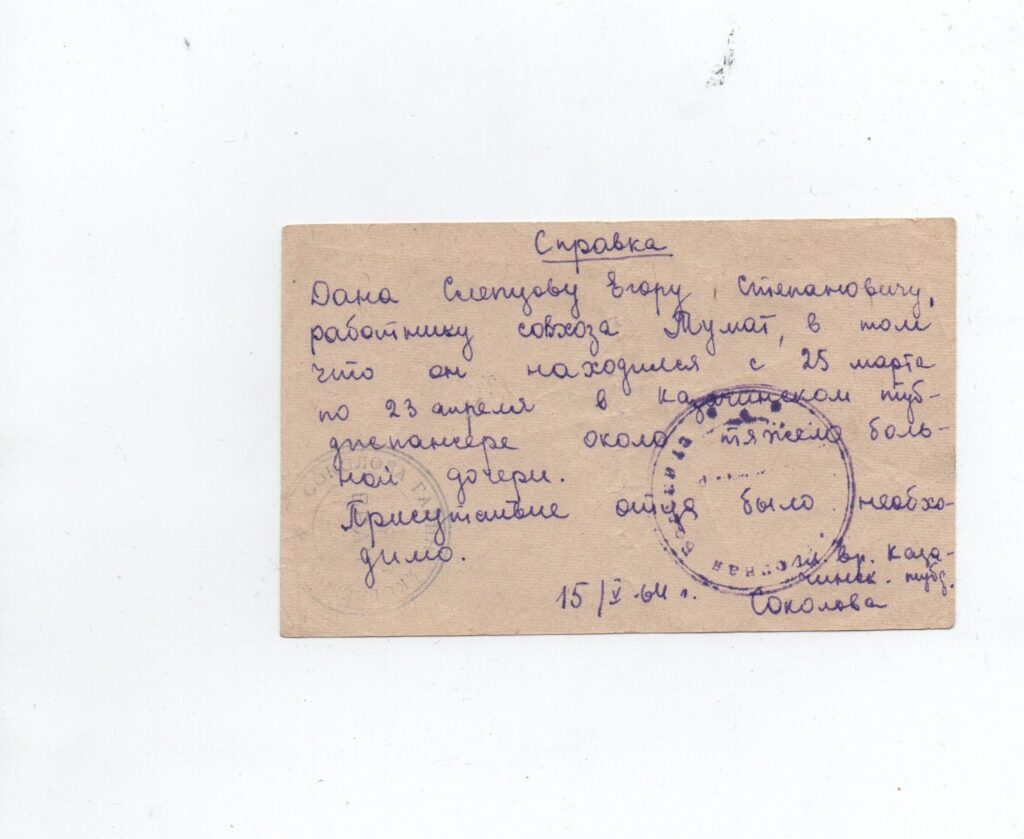 Справка
Дана Слепцову Егору Степановичу,
работнику совхоза Тумат, в том
что он находился с 25 марта
по 23 апреля в Казачинском туб-
диспансере около тяжело боль-
ной дочери.
Присутствие отца было необхо-
димо.
гл. вр. каза-
чинск. тубд.
15/V-64 г. Соколова
СОКОЛОВА
больница